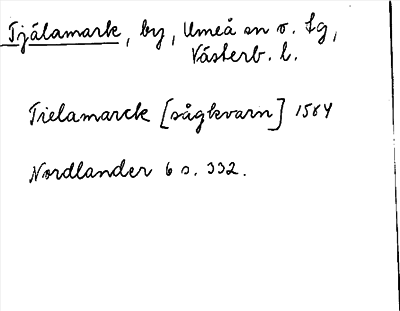 Tjälamark, by, Umeå sn o. tg,
Västerb. l.
Tielamarck [sågkvarn] 1564
Nordlander 6 s. 332.